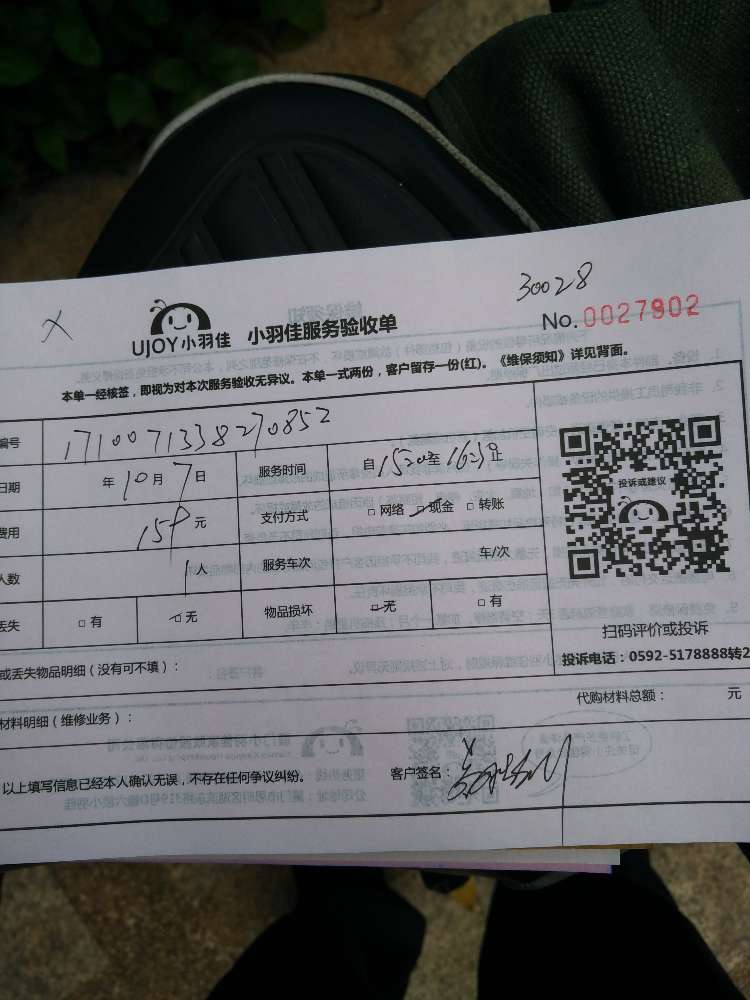 30028
UJOY小羽佳 小羽佳服务验收单 No.0027902
本单一经核签,即视为对本次服务验收无异议。本单一式两份,客户留存一份(红)。《维保须知》详见背面。
编号 1710071338270852
日期 年10月7日 服务时间 自1520至1623止
费用 159元 支付方式 □网络 □现金 □转账
人数 1人 服务车次 车/次
丢失 □有 □无 物品损坏 □无 □有
投诉或建议
扫码评价或投诉
投诉电话:0592-5178888转2
或丢失物品明细(没有可不填):
材料明细(维修业务): 代购材料总额: 元
以上填写信息已经本人确认无误,不存在任何争议纠纷。 客户签名: